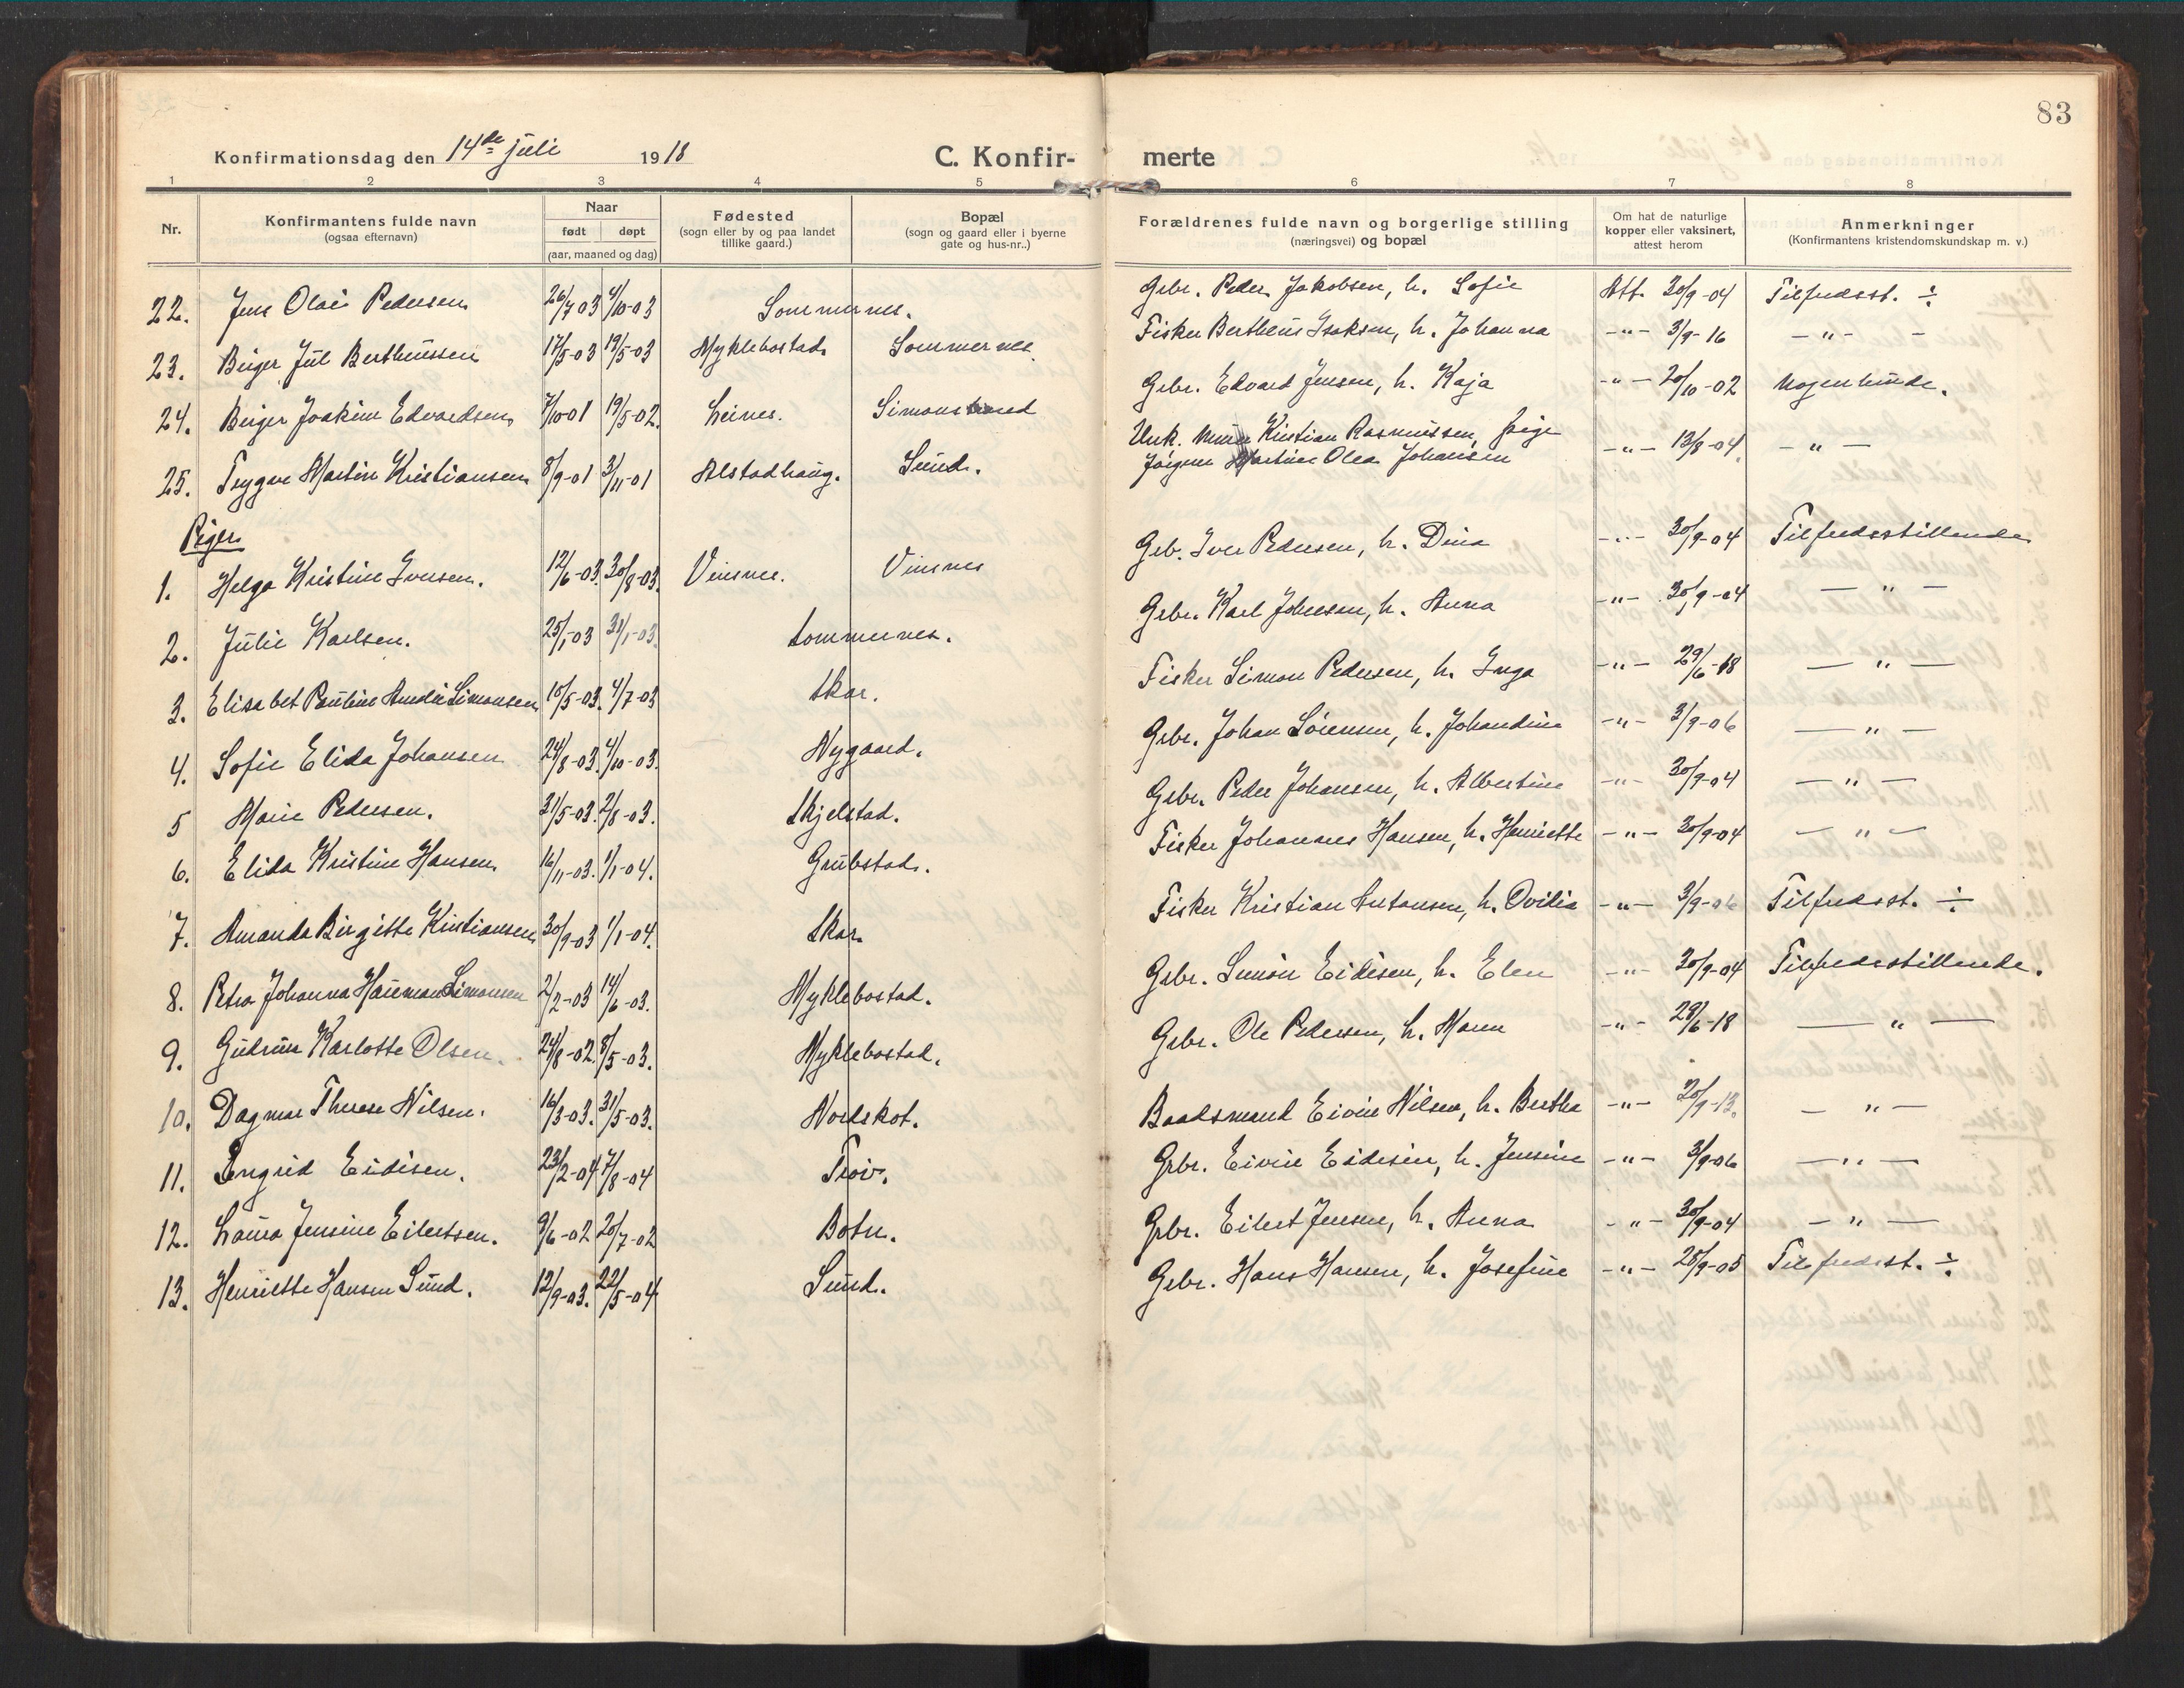 83
Konfirmationsdag den 14de juli 1918 C. Konfir- merte
1 2 3 4 5 6 7 8
Nr. Konfirmantens fulde navn (ogsaa efternavn) Naar født døpt (aar, maaned og dag) Fødested (sogn eller by og paa landet tillike gaard.) Bopæl (sogn og gaard eller i byerne gate og hus-nr..) Forældrenes fulde navn og borgerlige stilling (næringsvei) og bopæl Om hat de naturlige kopper eller vaksinert, attest herom Anmerkninger (Konfirmantens kristendomskundskap m. v.)
22. Jens Olai Pedersen 26/7 03 4/10-03 Sommernes. Gbr. Peder Jakobsen, h. Sofie Att. 30/9-04 Tilfredsst. ÷
23. Birger Jul Bertheussen 17/5-03 19/5-03 Myklebostad Sommernes. Fisker Bertheus Isaksen, h. Johanna -"- 3/9-16 -"- -
24. Birger Joakim Edvardsen 7/10-01 19/5-02. Leines. Simonstrand Gbr. Edvard Jensen, h. Kaja -"- 20/10-02 Nogenlunde.
25. Trygve Martin Kristiansen 8/9-01 3/11-01 Alstadhaug. Sund. Unk. Kristian Rasmussen, pige -"- 13/8-04. -"-
Jørgine Martine Olea Johansen
Piger
1. Helga Kristine Iversen. 12/6-03. 30/8-03. Vinsnes. Vinsnes Gbr. Iver Pedersen, h. Dina -"- 30/9-04 Tilfredsstillende
2. Julie Karlsen. 25/1-03 31/1-03. Sommernes. Gbr. Karl Johnsen, h. Anna -"- 30/9-04 -"-
3. Elisabet Pauline Amalie Simonsen 15/5-03. 4/7-03 Skar. Fisker Simon Pedersen, h. Inga -"- 29/6-18 -"-
4. Sofie Elida Johansen 24/8-03. 4/10-03. Nygaard. Gbr. Johan Sørensen, h. Johandine -"- 3/9-06 -"-
5 Marie Pedersen. 31/5-03. 2/8-03. Skjelstad. Gbr. Peder Johansen, h. Albertine -"- 30/9-04 -"-
6. Elida Kristine Hansen. 16/11-03. 1/1-04. Grubstad. Fisker Johannes Hansen, h. Henriette -"- 30/9-04 -"-
7. Amanda Birgitte Kristiansen 30/9-03 1/1-04. Skar. Fisker Kristian Antonsen, h. Ovilia -"- 3/9-06 Tilfredsst. ÷
8. Petra Johanna Simonsen 2/2-03 14/6-03. Myklebostad. Gbr. Simon Eidisen, h. Elen -"- 30/9-04 Tilfredsstillende.
9. Gudrun Karlotte Olsen. 24/8-02. 8/5-03. Myklebostad. Gbr. Ole Pedersen, h. Maren -"- 28/6-18 -"-
10. Dagmar Therese Nilsen. 16/3-03. 31/5-03. Nordskot. Baadsmand Eivin Nilsen, h. Bertha -"- 20/9-13. -"-
11. Ingrid Eidisen. 23/2-04 7/8-04 Tröv. Gbr. Eivin Eidisen, h. Jensine -"- 3/9-06 -"-
12. Laura Jensine Eilertsen. 9/6-02 20/7-02 Botn. Gbr. Eilert Jensen, h. Anna -"- 30/9-04 -"-
13. Henriette Hansen Sund. 12/9-03. 22/5-04 Sund. Gbr. Hans Hansen, h. Josefine -"- 25/9-05 Tilfredsst. ÷